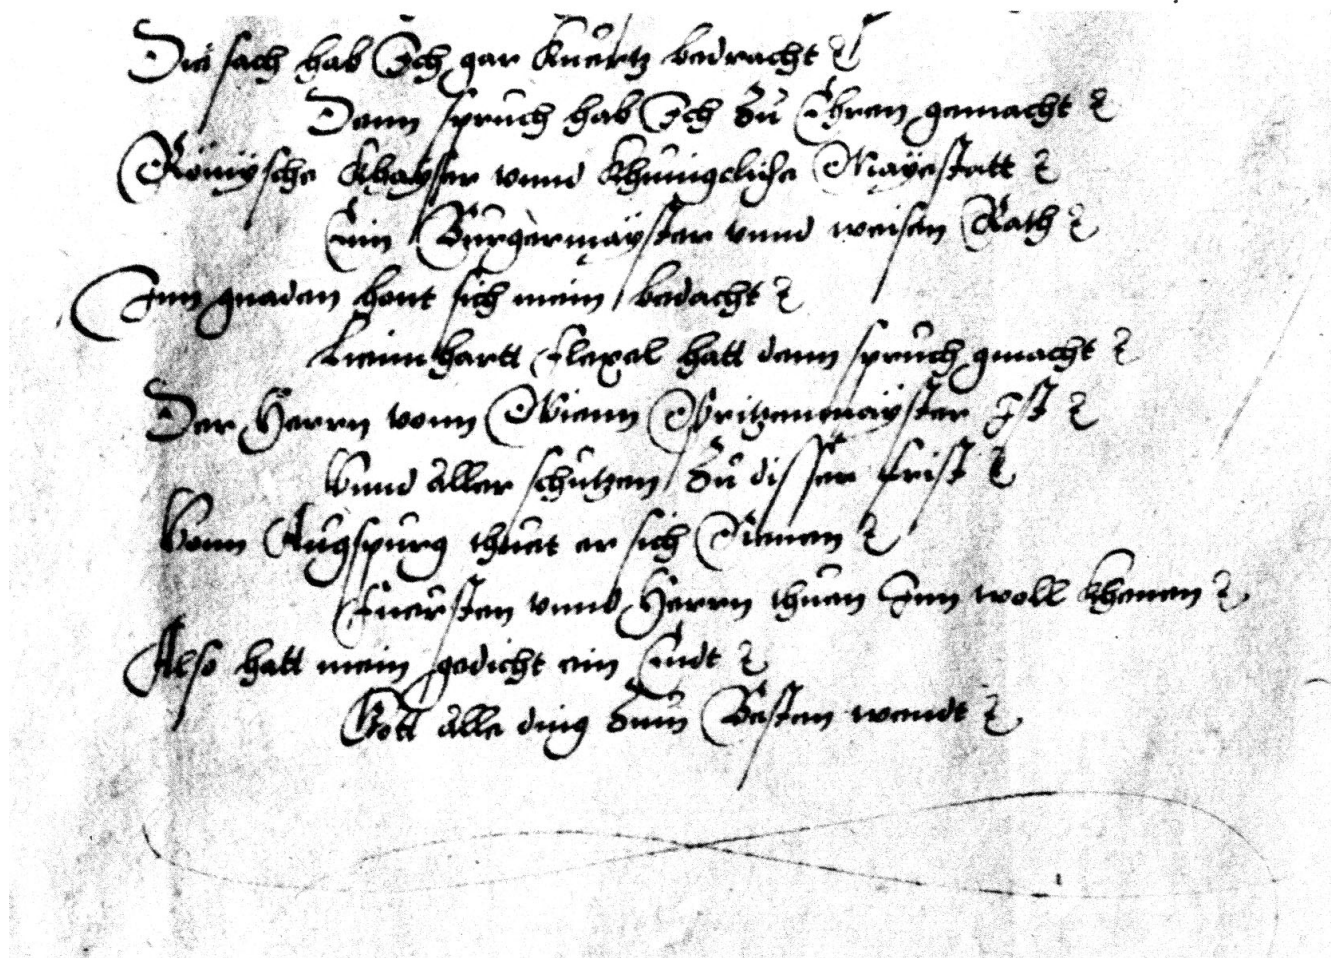 Die sach hab Ich gar kuertz bedracht
Denn spruch hab Ich zu Ehren gemacht
Römÿsche Khaÿser vnnd Khuingeliche Maÿestatt
Ein Burgermaÿster vnnd weisen Rath
Inn gnaden hont sich mein bedacht
Liennhartt Flexel hatt denn spruch gmacht
Der Herrn vonn Wienn Pritzenmaÿster Ist
Vnnd aller schutzen zu disser frist
Vonn Augspurg thuet er sich Nenen
Fuersten vnnd Herrn thuen Inn woll khenen
Also hatt mein gedicht ein Endt
Gott alle ding zum Besten wendt